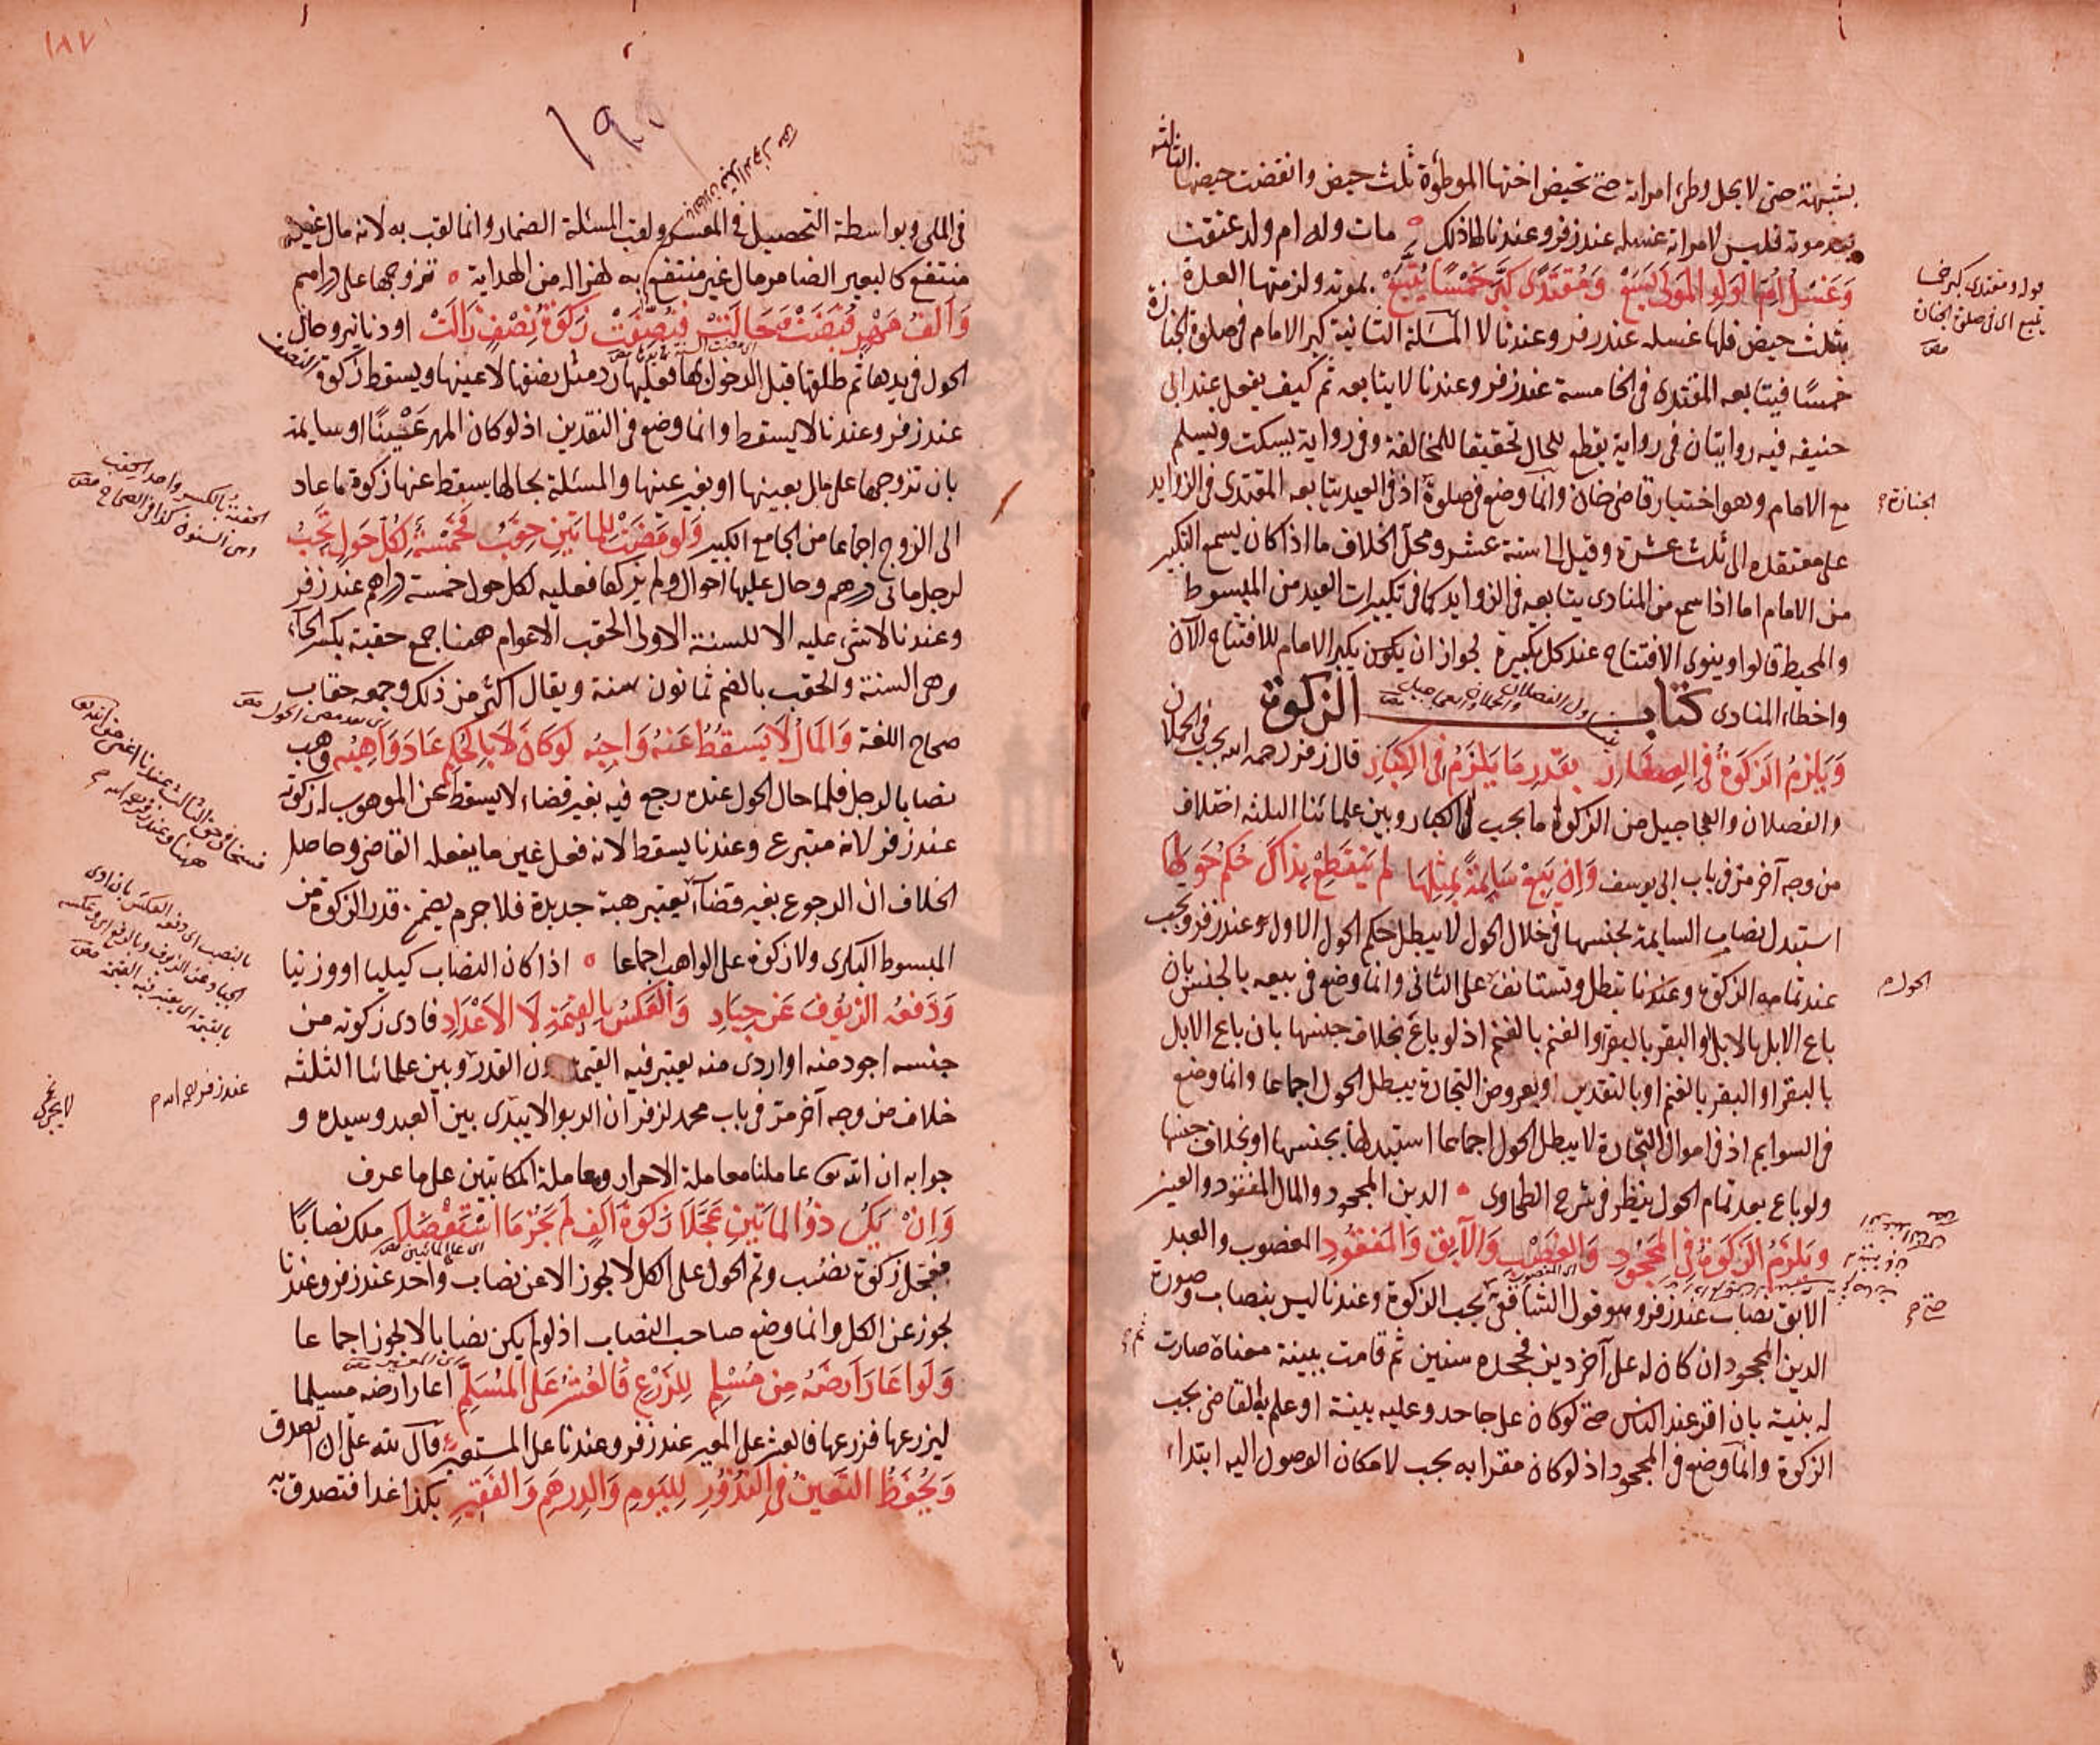 بشبهة حتى لا يحل وطئ امراته حتى تحيض اختها الموطؤة ثلث حيض وانقضت حيضها الثالثة
بعد موته فليس لامراته غسله عند زفر وعندنا لها ذلك مات وله ام ولد عتقت
وَغَسْلُ اُمِّ الوَلَدِ المَولَى يَسَعْ وَمُقتَدًى كَبَّرَ خَمْسًا يُتَّبَعْ بموته ولزمتها العدة
بثلث حيض فلها غسله عند زفر وعندنا لا المسئلة الثانية كبر الامام في صلوة الجنازة
خمسًا فيتابعه المقتدى في الخامسة عند زفر وعندنا لا يتابعه ثم كيف يفعل عند ابى
حنيفه فيه روايتان في رواية يقطع للحال تحقيقا للمخالفة وفي رواية يسكت ويسلم
مع الامام وهو اختيار قاضى خان وانما وضع في صلوة اذ في العيد يتابعه المقتدى في الزوايد
على معتقده الى ثلث عشرة وقيل الى ستة عشر ومحل الخلاف ما اذا كان يسمع التكبير
من الامام اما اذا سمع من المنادى يتابعه في الزوايد كما في تكبيرات العيد من المبسوط
والمحيط قالوا وينوى الافتتاح عند كل تكبيرة لجواز ان يكون يكبر الامام للافتتاح الآن
واخطاء المنادى كتاب الزكوة
وَيَلزَمُ الزَكَوةُ فى الصِغَارِ بقَدرِ مَا يَلزَمُ فى الكِبَارِ قال زفر رحمه الله يجب في الحملان
والفصلان والعجاجيل من الزكوة ما يجب في الكبار وبين علمائنا الثلثه اختلاف
من وجه آخر مر في باب ابى يوسف وَاِن يَبِعْ سَايِمَةً بمِثلِهَا لم يَنقَطِعْ بِذاكَ حُكمُ حَولِهَا
استبدل نصاب السايمة بجنسها في خلال الحول لا يبطل حكم الحول الاول عند زفر ويجب
عند تمامه الزكوة وعندنا يبطل وتستانف على الثانى وانما وضع في بيعه بالجنس بان
باع الابل بالابل والبقر بالبقر والغنم بالغنم اذ لو باع بخلاف جنسها بان باع الابل
بالبقر او البقر بالغنم او بالنقدين او بعروض التجارة يبطل الحول اجماعا وانما وضع
في السوايم اذ في اموال التجارة لا يبطل الحول اجماعا استبدلها بجنسها او بخلاف جنسها
ولو باع بعد تمام الحول ينظر في شرح الطحاوى الدين المجحود والمال المفقود والعبد
وَيَلزَمُ الزَكَوةُ فى المَجحُودِ وَالغَصْبِ وَالآبِقِ وَالمَفقُودِ المغصوب والعبد
الآبق نصاب عند زفر وهو قول الشافعى يجب الزكوة وعندنا ليس بنصاب وصورة
الدين المجحود ان كان له على آخر دين فجحده سنين ثم قامت بينة معناه صارت
له بنية بان اقر عند الناس حتى لو كان على جاحد وعليه بينة او علم به القاضى يجب
الزكوة وانما وضع في المجحود اذ لو كان مقرا به يجب لامكان الوصول اليه ابتداء
قوله ومقتدى كبر خمسا
يتبع اى في صلوة الجنازة
الجنازة
الحول
١٨٧
١٩
في الملى وبواسطة التحصيل في المعسر ولقب المسئلة الضمار وانما لقب به لانه مال غير
منتفع كالبعير الضامر مال غير منتفع به لهزاله من الهداية تزوجها على دراهم
وَاَلفُ مَهْرٍ قُبِضَتْ وَحَالَتْ فَنُصِّفَتْ زَكَوةُ نِصْفٍ زَالَتْ او دنانير وحال
الحول في يدها ثم طلقها قبل الدخول بها فعليها رد مثل نصفها لا عينها ويسقط زكوة النصف
عند زفر وعندنا لا يسقط وانما وضع في النقدين اذ لو كان المهر عينًا او سايمة
بان تزوجها على مال بعينها او بغير عينها والمسئلة بحالها يسقط عنها زكوة ما عاد
الى الزوج اجماعا من الجامع الكبير وَلَو مَضَتْ لِلمائتَينِ حِقَبُ فَخَمْسَةٌ لِكُلِّ حَولٍ تَجِبُ
لرجل مائى درهم وحال عليها احوال ولم يزكها فعليه لكل حول خمسة دراهم عند زفر
وعندنا لا شئ عليه الا للسنة الاولى الحقب الاعوام ههنا جمع حقبة بكسر الحاء
وهى السنة والحقب بالضم ثمانون سنة ويقال اكثر من ذلك وجمعه حقاب
صحاح اللغة وَالمَالُ لَا يَسقُطُ عَنهُ وَاجِبُه لَو كَانَ لَا بِالحُكمِ عَادَ وَاهِبُه وهب
نصابا لرجل فلما حال الحول عنده رجع فيه بغير قضاء لا يسقط عن الموهوب له زكوته
عند زفر لانه متبرع وعندنا يسقط لانه فعل غير ما يفعله القاضى وحاصل
الخلاف ان الرجوع بغير قضآء يعتبر هبة جديدة فلا جرم يضمن قدر الزكوة من
المبسوط البكرى ولا زكوة على الواهب اجماعا اذا كان النصاب كيليا او وزنيا
وَدَفعُه الزيُوفَ عَن جِيَادِ وَالعَكسُ بِالقِيمَةِ لَا الاَعْدَادِ فادى زكوته من
جنسه اجود منه او اردى منه يعتبر فيه القيمة دون القدر وبين علمائنا الثلثه
خلاف من وجه آخر مر في باب محمد لزفر ان الربوا لا يبدى بين العبد وسيده و
جوابه ان الله تعالى عاملنا معاملة الاحرار ومعاملة المكاتبين على ما عرف
وَاِنْ يَكُ ذُو المائتَينِ عَجَّلَا زَكَوةَ اَلفٍ لَم يَجُز مَا استَفْضَلَا ملك نصابًا
فعجل زكوة نصب وتم الحول على الكل لا يجوز الا عن نصاب واحد عند زفر وعندنا
يجوز عن الكل وانما وضع صاحب النصاب اذ لو لم يكن نصابا لا يجوز اجماعا
وَلَو اعَارَ اَرضَهُ مِن مُسْلِمِ لِلزَرْعِ فَالعُشرُ عَلَى المُسَلِّمِ اعار ارضه مسلما
ليزرعها فزرعها فالعشر على المعير عند زفر وعندنا على المستعير قال لله على ان اتصدق
وَيُحفَظُ التَعيِينُ فى النُذُورِ لِليَومِ وَالدِرهَمِ وَالفَقِيرِ بكذا غدا فتصدق به
الحقبة بالكسر واحد الحقب
وهى السنون كذا في الصحاح
عند زفر رحمه الله